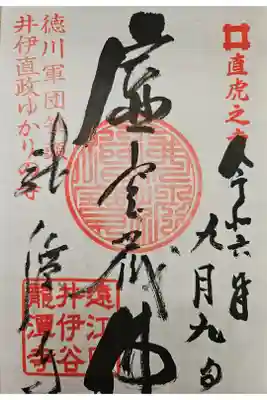 直虎之
令和六年
九月九日
虚空蔵佛
徳川軍団筆頭
井伊直政ゆかりの寺
龍潭寺
遠江国
井伊谷
龍潭寺